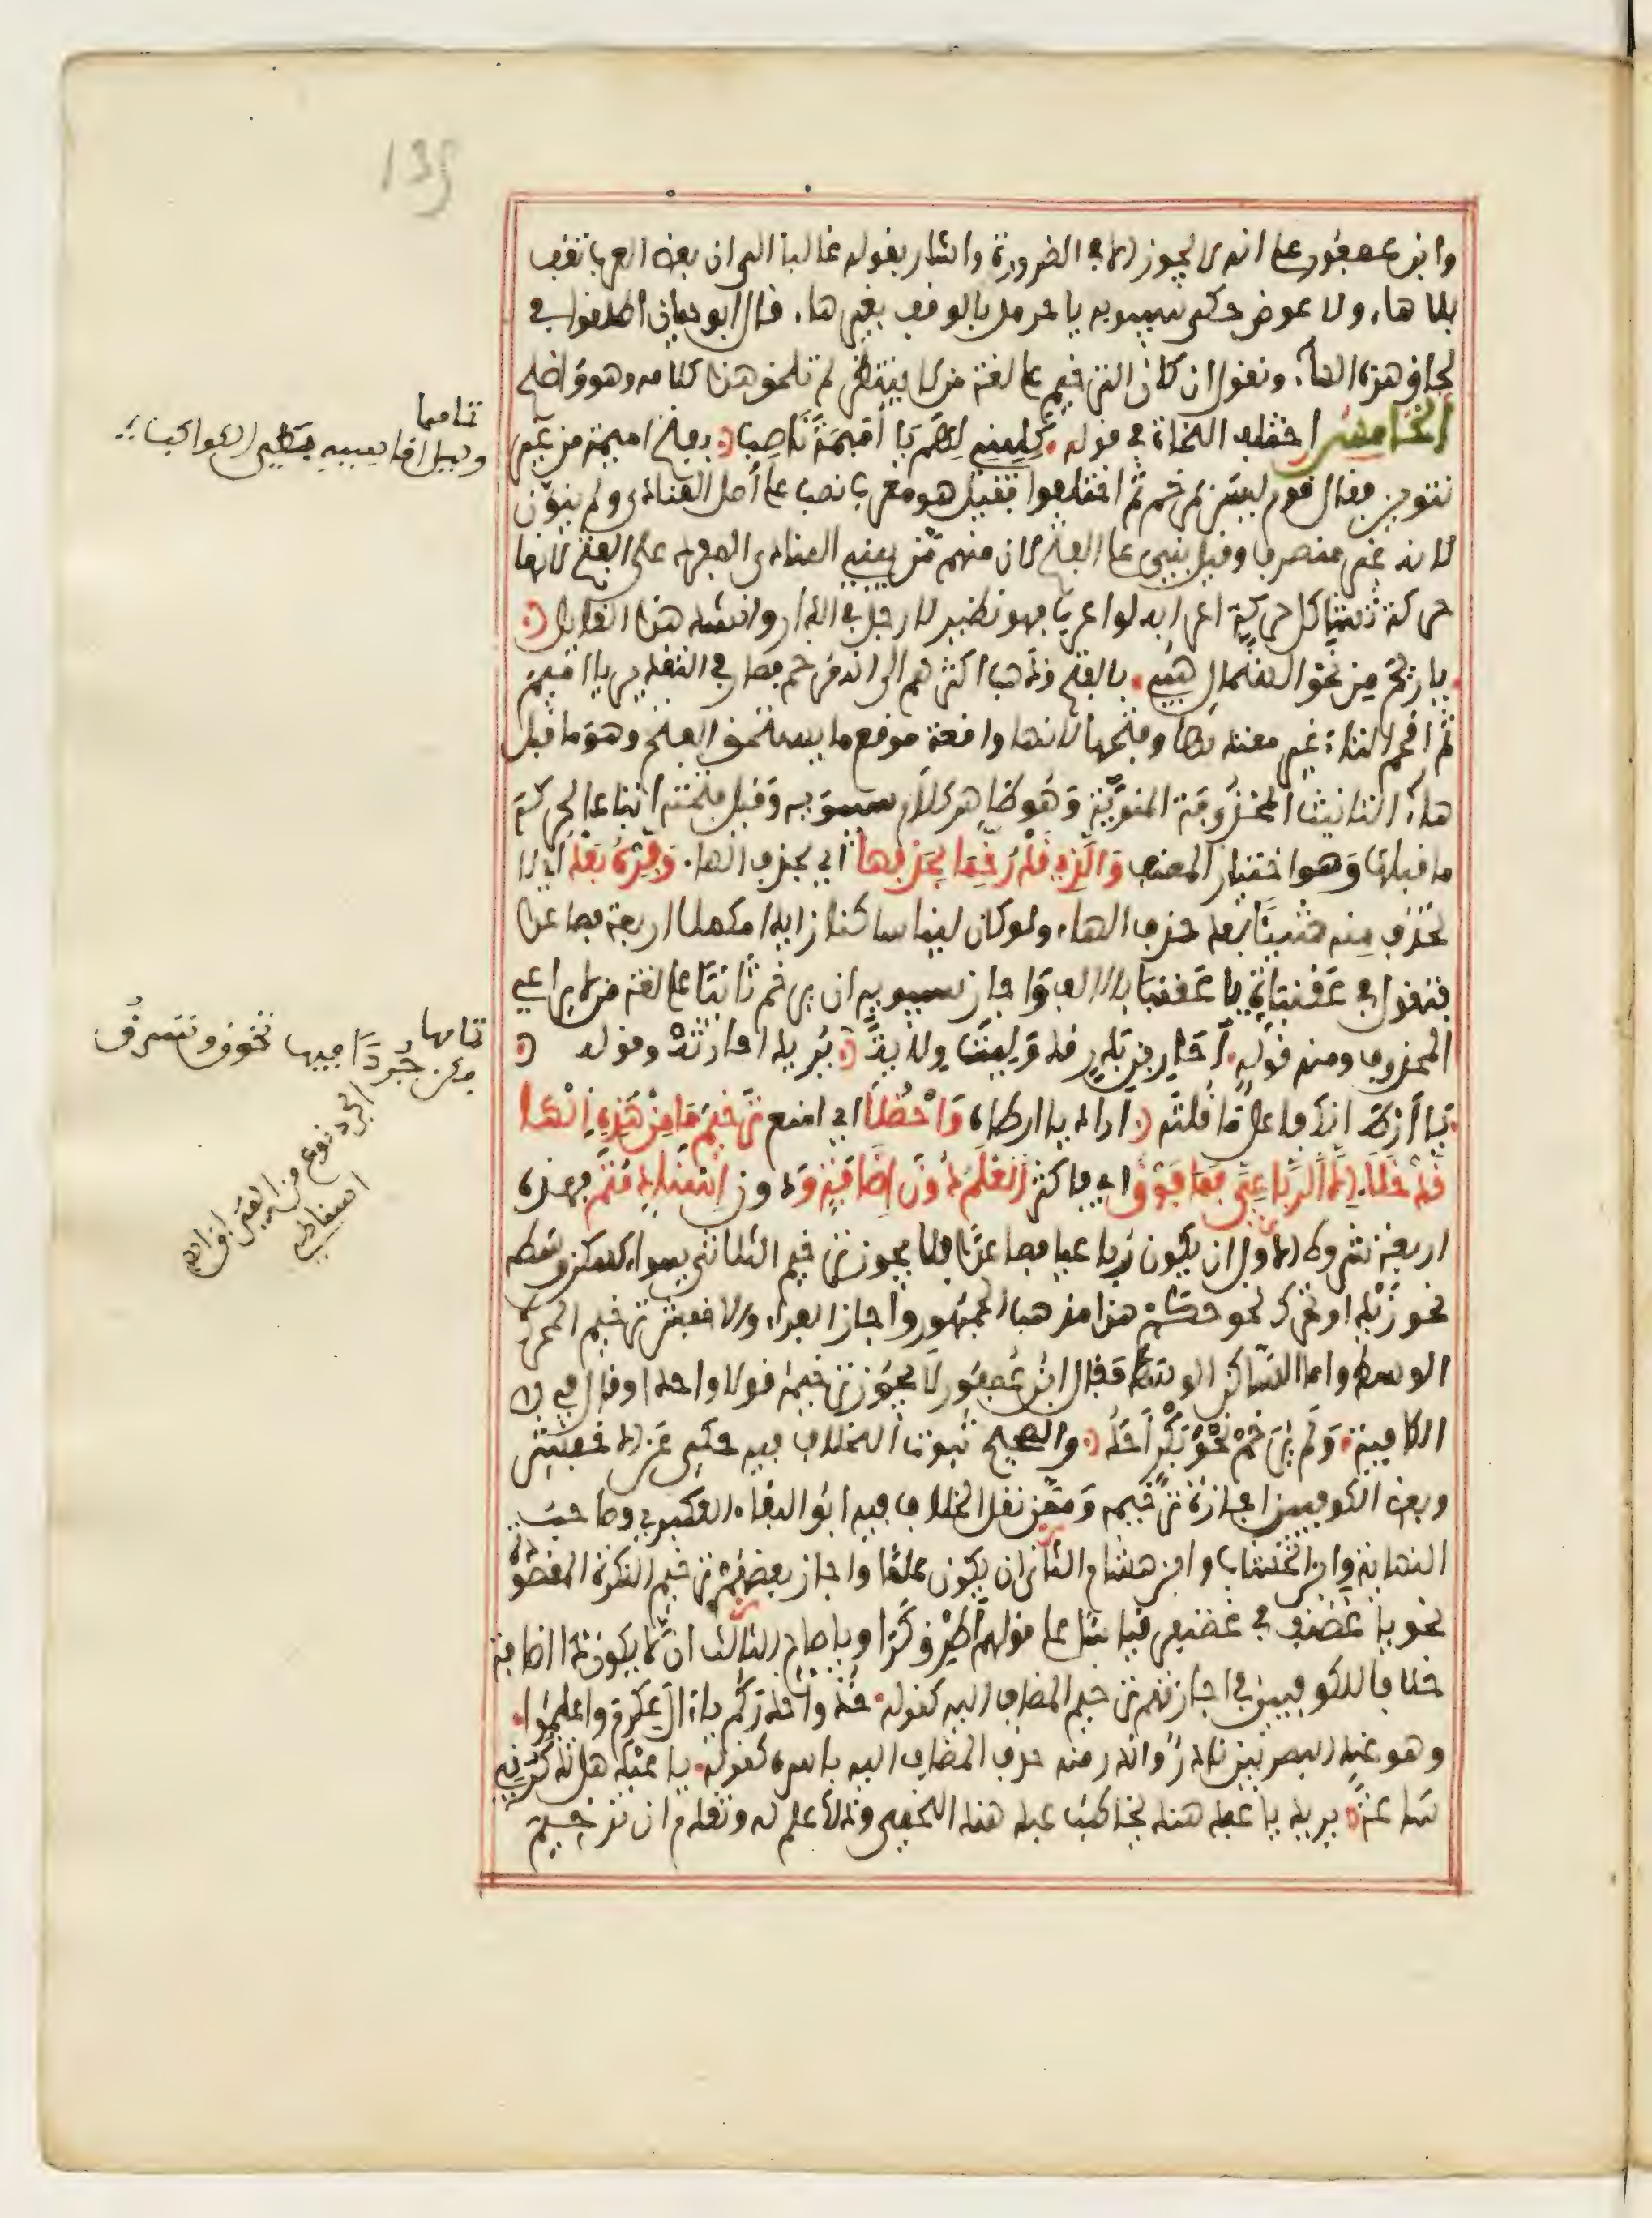 135
وابن عصفور على انه لا يجوز الا في الضرورة واشار بقوله غالبا الى ان بعض العرب يقف
بلا هاء ولا عوض حكى سيبويه يا حرمل بالوقف بغير هاء قال ابو حيان اطلقوا في
لحاق هذه الهاء ونقول ان كان الترخيم على لغة من لا ينتظر لم تلحق هذا كلامه وهو واضح
الخامس اختلف النحاة في قوله كليني لهم يا أميمة ناصب بفتح اميمة من غير
تنوين فقال قوم ليس بمرخم ثم اختلفوا فقيل هو معرب نصب على أصل المنادى ولم ينون
لانه غير منصرف وقيل بني على الفتح لان منهم من يبني المنادى المفرد على الفتح لانها
حركة تشاكل حركة اعرابه لو اعرب فهو نظير لا رجل في الدار وانشد هذا القايل
يا ريح من نحو الشمال هبي بالفتح وذهب اكثرهم الى انه مرخم فصار في التقدير يا اميم
ثم اقحم التاء غير معتد بها وفتحها لانها واقعة موقع ما يستحق الفتح وهو ما قبل
هاء التانيث المحذوفة المنوية وهو ظاهر كلام سيبويه وقيل فتحت اتباعا لحركة
ما قبلها وهو اختيار المصنف والذي قد رخما بحذفها اي بحذف الهاء وفره بعد اي لا
تحذف منه شيئا بعد حذف الهاء ولو كان لينا ساكنا زايدا مكملا اربعة فصاعدا
فتقول في عقنباة يا عقنبا بالالف واجاز سيبويه ان يرخم ثانيا على لغة من لا يراعي
المحذوف ومنه قوله أحار بن بدر قد وليت ولاية يريد احارثة وقوله
يا أرط انك فاعل ما قلته اراد يا ارطاة واحظلا اي امنع ترخيم ما من هذه الها
قد خلا الا الرباعي فما فوق اي فاكثر العلم دون اضافة و دون اسناد متم فهذه
اربعة شروط الاول ان يكون رباعيا فصاعدا فلا يجوز ترخيم الثلاثي سواء سكن وسطه
نحو زيد او تحرك نحو حكم هذا مذهب الجمهور واجاز الفراء والاخفش ترخيم المحرك
الوسط واما الساكن الوسط فقال ابن عصفور لا يجوز ترخيمه قولا واحدا وقال في
الكافية ولم يرخم نحو بكر أحد والصحيح ثبوت الخلاف فيه حكي عن الاخفش
وبعض الكوفيين اجازة ترخيمه وممن نقل الخلاف فيه ابو البقاء العكبري وصاحب
النهاية وابن الخشاب وابن هشام الثاني ان يكون علما واجاز بعضهم ترخيم النكرة المقصودة
نحو يا غضنف في غضنفر قياسا على قولهم أطرق كرا ويا صاح الثالث ان لا يكون ذا اضافة
خلافا للكوفيين في اجازتهم ترخيم المضاف اليه كقوله خذوا حذركم يا آل عكرم واعلموا
وهو عند البصريين نادر واندر منه حذف المضاف اليه باسره كقوله يا عبد هل تذكرني
ساعة يريد يا عبد هند يخاطب عبد هند اللخمي وذا علم له وتقدم ان ترخيم
تمامها
وليل اقاسيه بطيء الكواكب
تمامها